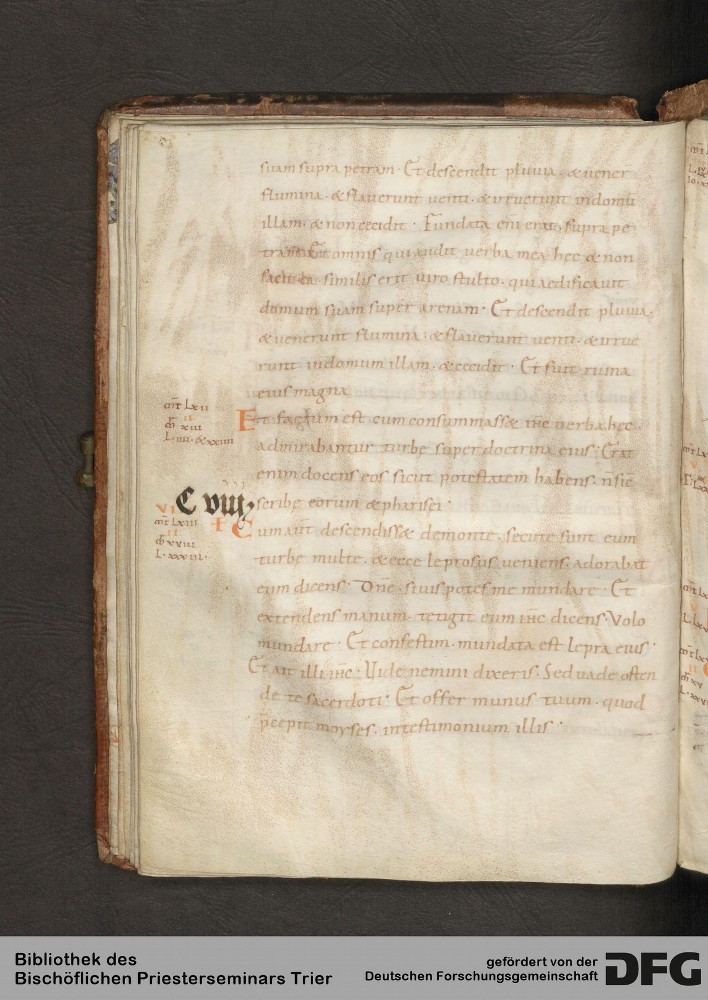 suam supra petram · Et descendit pluuia · & uener̄
flumina · & flauerunt uenti · & irruerunt indomū
illam · & non cecidit · Fundata eni erat · supra pe
tram · Et omnis qui audit uerba mea hec & non
facit ea similis erit uiro stulto · qui aedificauit
domum suam super arenam · Et descendit pluuia ·
& uenerunt flumina · & flauerunt uenti · & irrue
runt indomum illam · & cecidit · Et fuit ruina
eius magna
mr̄ Lxii
ii
xiii
L · iiii · & xxiiii
Et factum est cum consummass& ihc uerba hec ·
admirabantur turbe super doctrina eius · Erat
enim docens eos sicut potestatem habens · n̄ sic
scribe eorum & pharisei ·
C viiij
VI
mr̄ Lxiii
ii
xviii
L · xxxiii ·
Cum aut̄ descendiss& demonte · secute sunt eum
turbe multe · & ecce leprosus ueniens · adorabat
eum dicens · Dn̄e · si uis potes me mundare · Et
extendens manum · tetigit eum ihc dicens · Volo
mundare · Et confestim · mundata est lepra eius ·
Et ait illi ihc · Uide nemini dixeris · Sed uade osten
de te sacerdoti · Et offer munus tuum · quod
p̄cepit moyses · intestimonium illis ·
Bibliothek des
Bischöflichen Priesterseminars Trier
gefördert von der
Deutschen Forschungsgemeinschaft
DFG